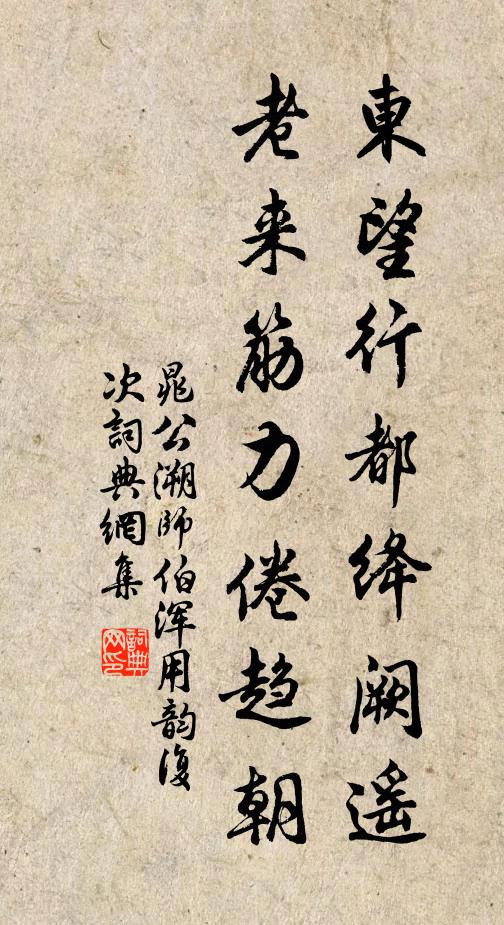 東望行都絳阙遥
老来筋力倦趋朝
晁公溯師伯渾用韵復
次詞典網集
詞典网印